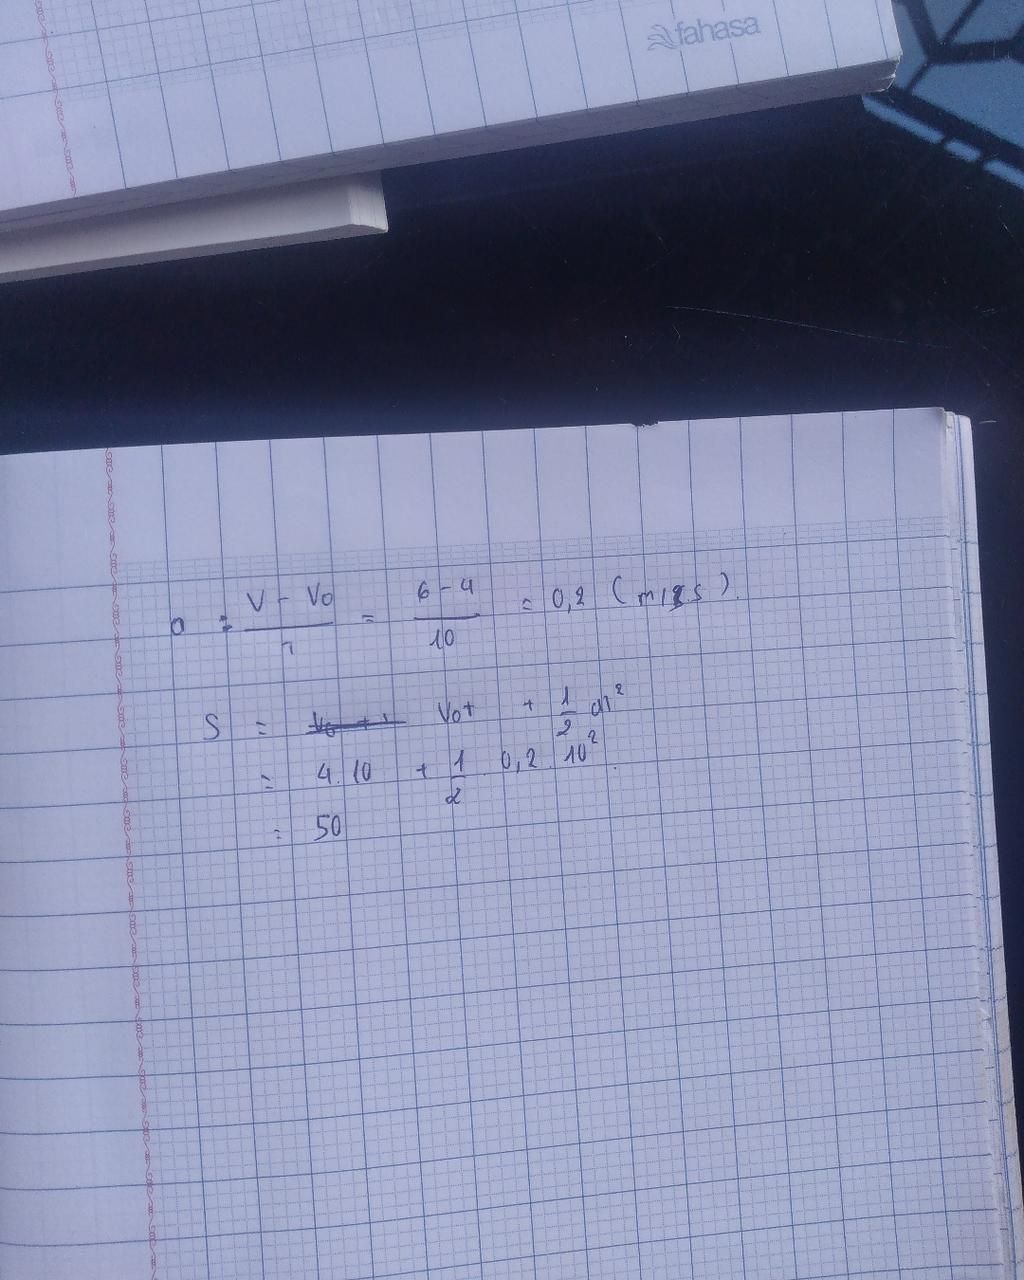 fahasa
a = V - V₀ / t = 6 - 4 / 10 = 0,2 (m/s)
S = V₀t + 1/2 at²
= 4.10 + 1/2 . 0,2 . 10².
= 50